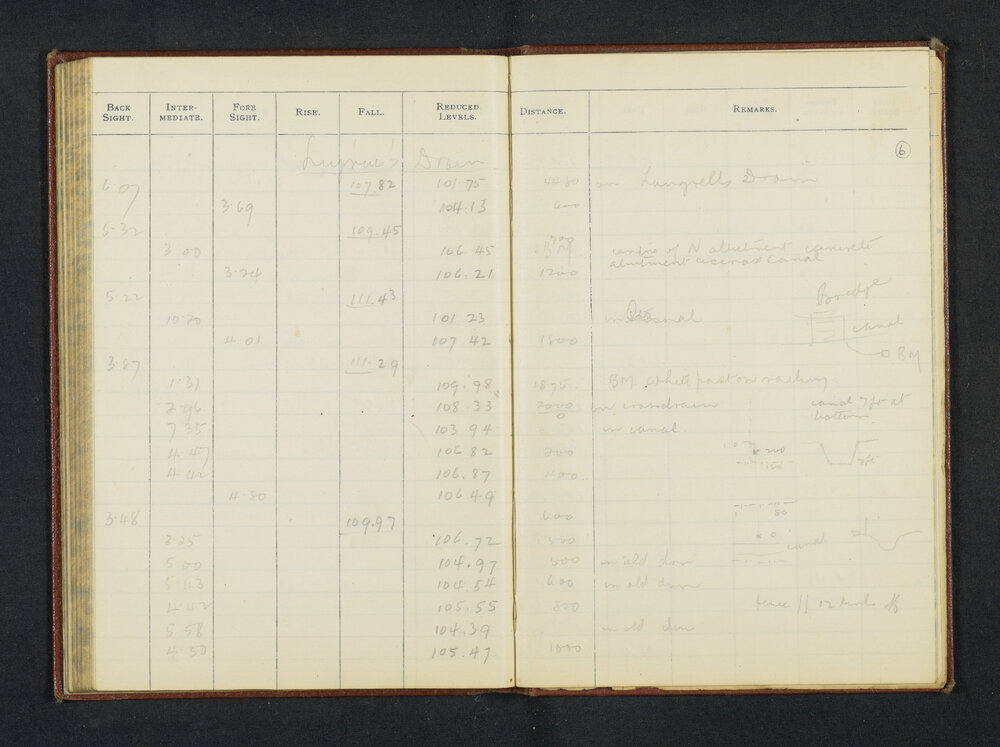 BACK SIGHT. INTER-MEDIATE. FORE SIGHT. RISE. FALL. REDUCED LEVELS. DISTANCE. REMARKS.
6
Drain
6.07 107.82 101.75 4480 in Langrells Drain
3.69 104.13 600
5.32 109.45
900
3.00 106.45 B.M. centre of N abutment concrete
abutment across Canal
3.24 106.21 1200
Bridge
5.22 111.43
10.20 101 23 in canal
canal
4.01 107 42 1800
BM
3.87 111.29
1.31 109.98 1875 BM. white post on railing
2.96 108.33 2000 in crossdrain canal 7ft at
bottom
7 35 103 94 0 in canal.
4.47 106 82 200
4.42 106.87 400
4.80 106 49
600
3.48 109.97
3.25 106.72 500
canal
5.00 104.97 500 in old drn
5.43 104.54 600 in old drn
4.42 105.55 800 fence // 12 links off
5 58 104.39 in old drn
4.50 105.47 1000